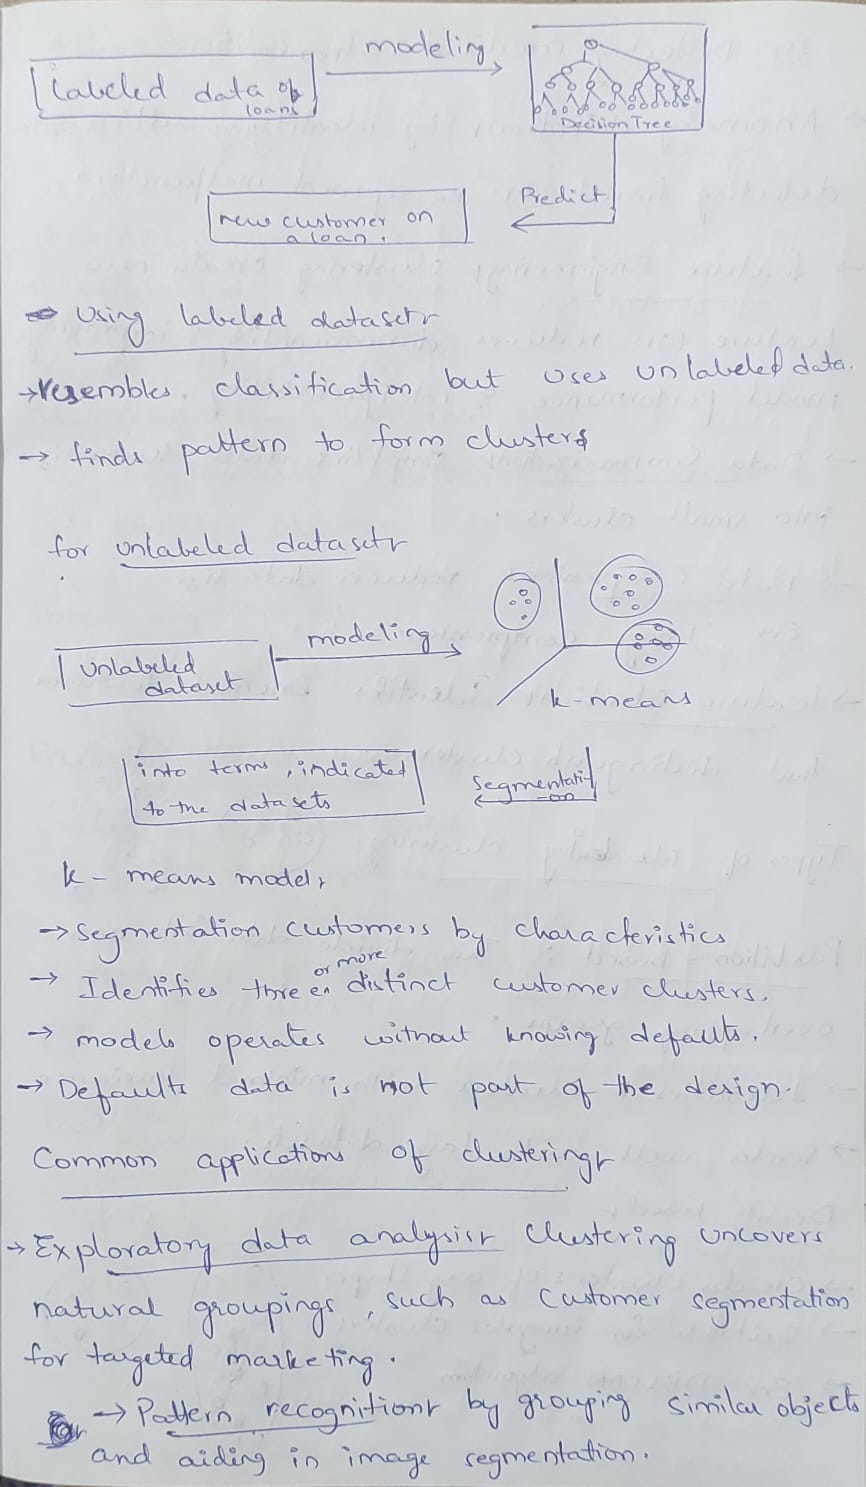 modeling
labeled data of
loans
Decision Tree
Predict
new customer on
a loan.
Using labeled dataset:
→ resembles classification but uses unlabeled data.
→ finds pattern to form clusters
for unlabeled dataset:
modeling
Unlabeled
dataset
k-means
into terms, indicated
to the datasets
Segmentati
-on
k- means model:
→ Segmentation customers by characteristics
or more
→ Identifies three distinct customer clusters.
→ models operates without knowing defaults.
→ Defaults data is not part of the design.
Common applications of clustering:
→ Exploratory data analysis: Clustering uncovers
natural groupings, such as customer segmentation
for targeted marketing.
→ Pattern recognition: by grouping similar objects
and aiding in image segmentation.